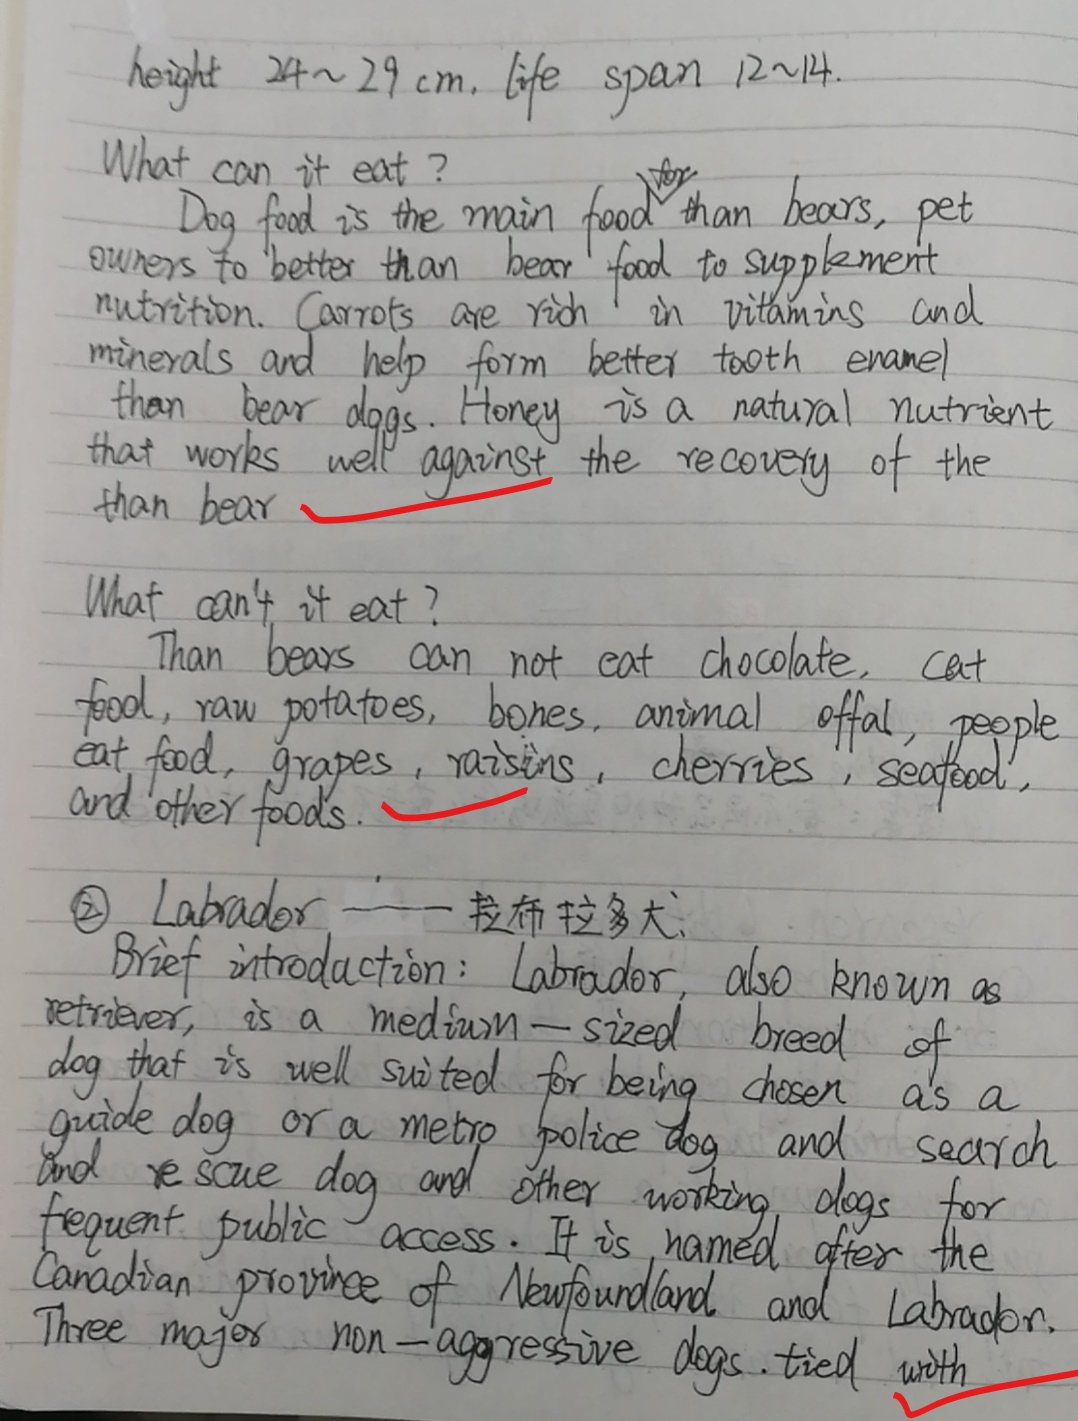 height 24~29 cm. life span 12~14.
What can it eat?
Dog food is the main food for than bears, pet
owners to better than bear food to supplement
nutrition. Carrots are rich in vitamins and
minerals and help form better tooth enamel
than bear dogs. Honey is a natural nutrient
that works well against the recovery of the
than bear
What can't it eat?
Than bears can not eat chocolate, cat
food, raw potatoes, bones, animal offal, people
eat food, grapes, raisins, cherries, seafood,
and other foods.
② Labrador —— 拉布拉多犬:
Brief introdaction: Labrador, also known as
retriever, is a medium-sized breed of
dog that is well suited for being chosen as a
guide dog or a metro police dog and search
and rescue dog and other working dogs for
frequent public access. It is named after the
Canadian province of Newfoundland and Labrador.
Three major non-aggressive dogs. tied with